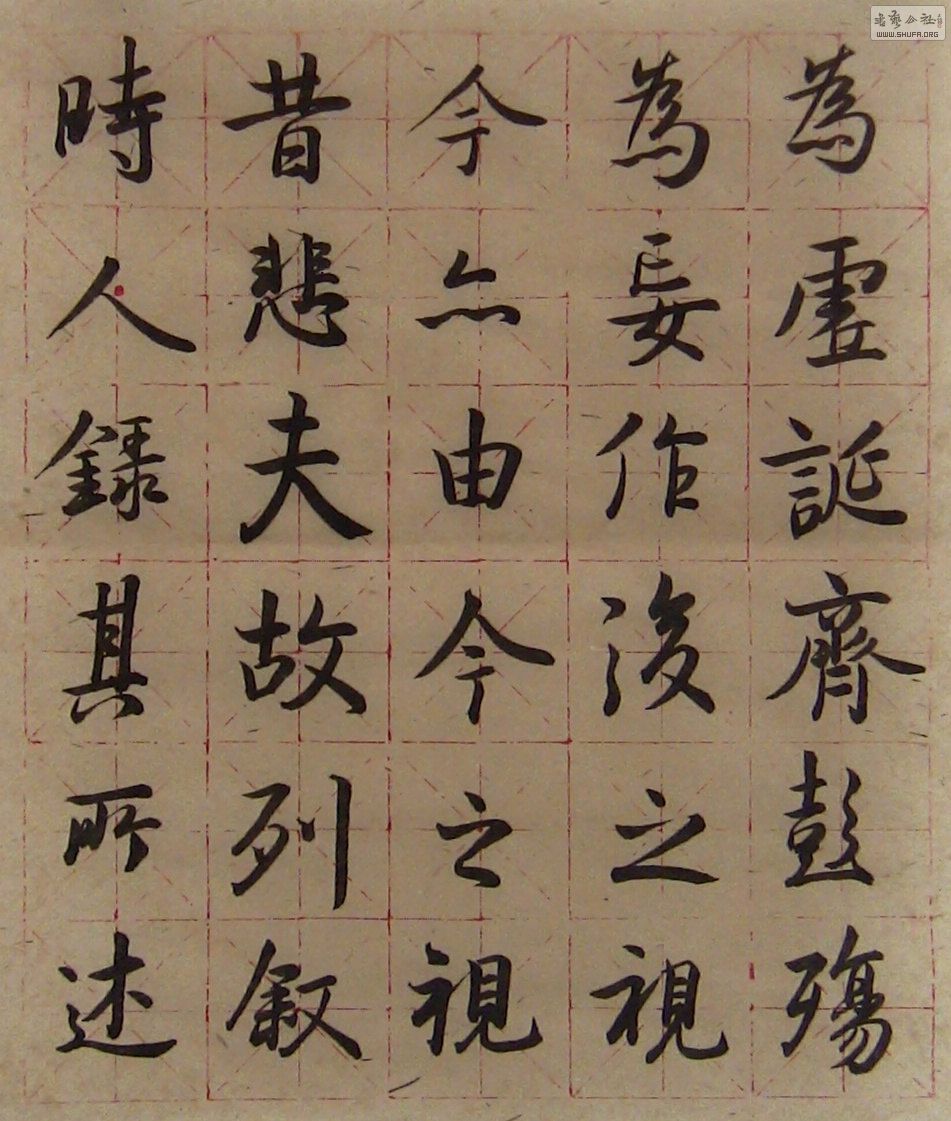 為虛誕齊彭殤
為妄作後之視
今亦由今之視
昔悲夫故列敘
時人錄其所述
WWW.SHUFA.ORG